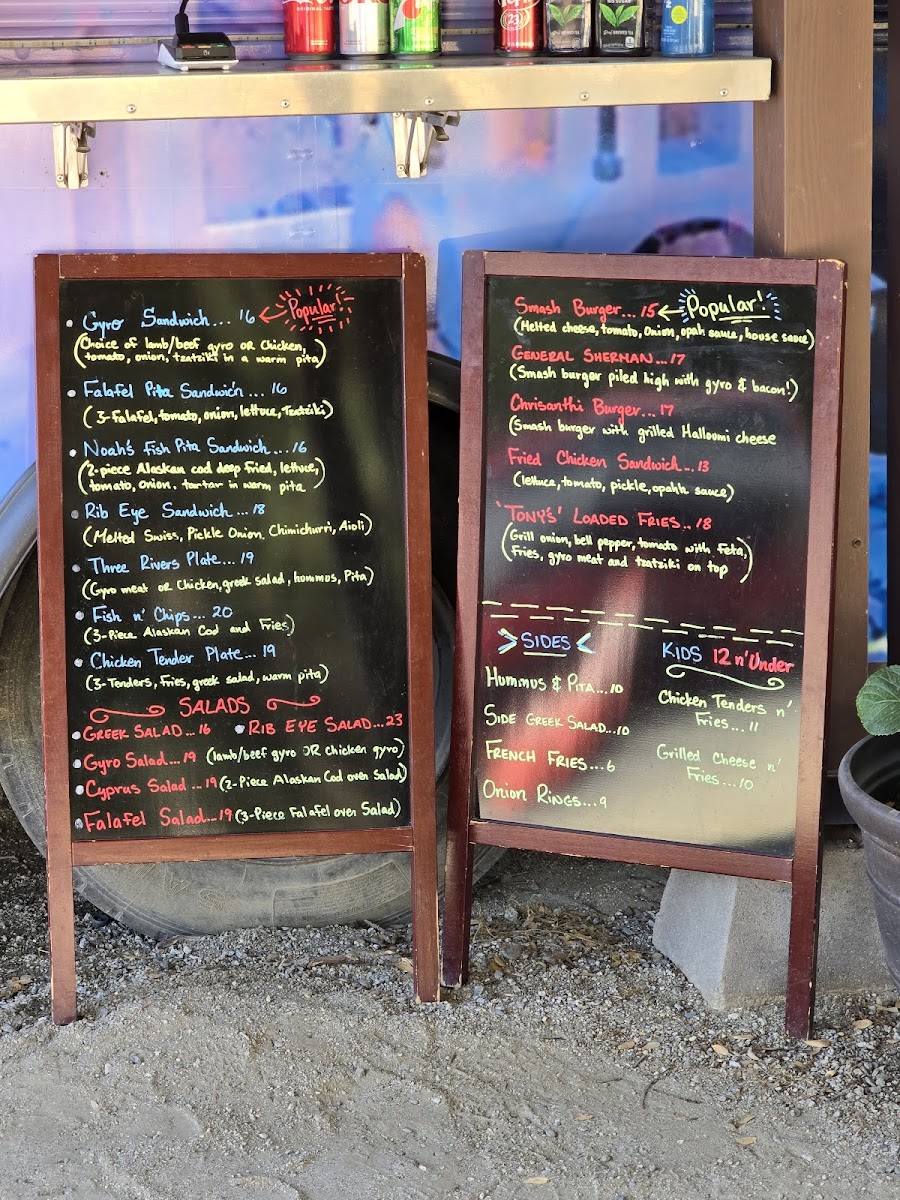 Gyro Sandwich... 16 Popular!
(Choice of lamb/beef gyro OR Chicken,
tomato, onion, tzatziki in a warm pita)
Falafel Pita Sandwich ... 16
(3-Falafel, tomato, onion, lettuce, Tzatziki)
Noah's Fish Pita Sandwich... 16
(2-piece Alaskan cod deep fried, lettuce,
tomato, onion, tartar in warm pita)
Rib Eye Sandwich ... 18
(Melted Swiss, Pickle Onion, Chimichurri, Aioli)
Three Rivers Plate... 19
(Gyro meat OR Chicken, greek salad, hommus, Pita)
Fish n' Chips... 20
(3-Piece Alaskan Cod and Fries)
Chicken Tender Plate... 19
(3-Tenders, Fries, greek salad, warm pita)
SALADS
GREEK SALAD... 16
RIB EYE SALAD... 23
Gyro Salad... 19 (lamb/beef gyro OR chicken gyro)
Cyprus Salad... 19 (2-Piece Alaskan Cod over Salad)
Falafel Salad... 19 (3-Piece Falafel over Salad)
Smash Burger... 15 Popular!
(Melted cheese, tomato, Onion, opah sauce, house sauce)
GENERAL SHERMAN... 17
(Smash burger piled high with gyro & bacon!)
Chrisanthi Burger... 17
(Smash burger with grilled Halloumi cheese
Fried Chicken Sandwich... 13
(lettuce, tomato, pickle, opahh sauce)
'TONY'S' LOADED FRIES... 18
(Grill onion, bell pepper, tomato with Feta,
Fries, gyro meat and tzatziki on top)
SIDES
HUMMUS & PITA... 10
SIDE GREEK SALAD... 10
FRENCH FRIES... 6
Onion RINGS... 9
KIDS 12 n' Under
Chicken Tenders n'
Fries... 11
Grilled Cheese n'
Fries... 10